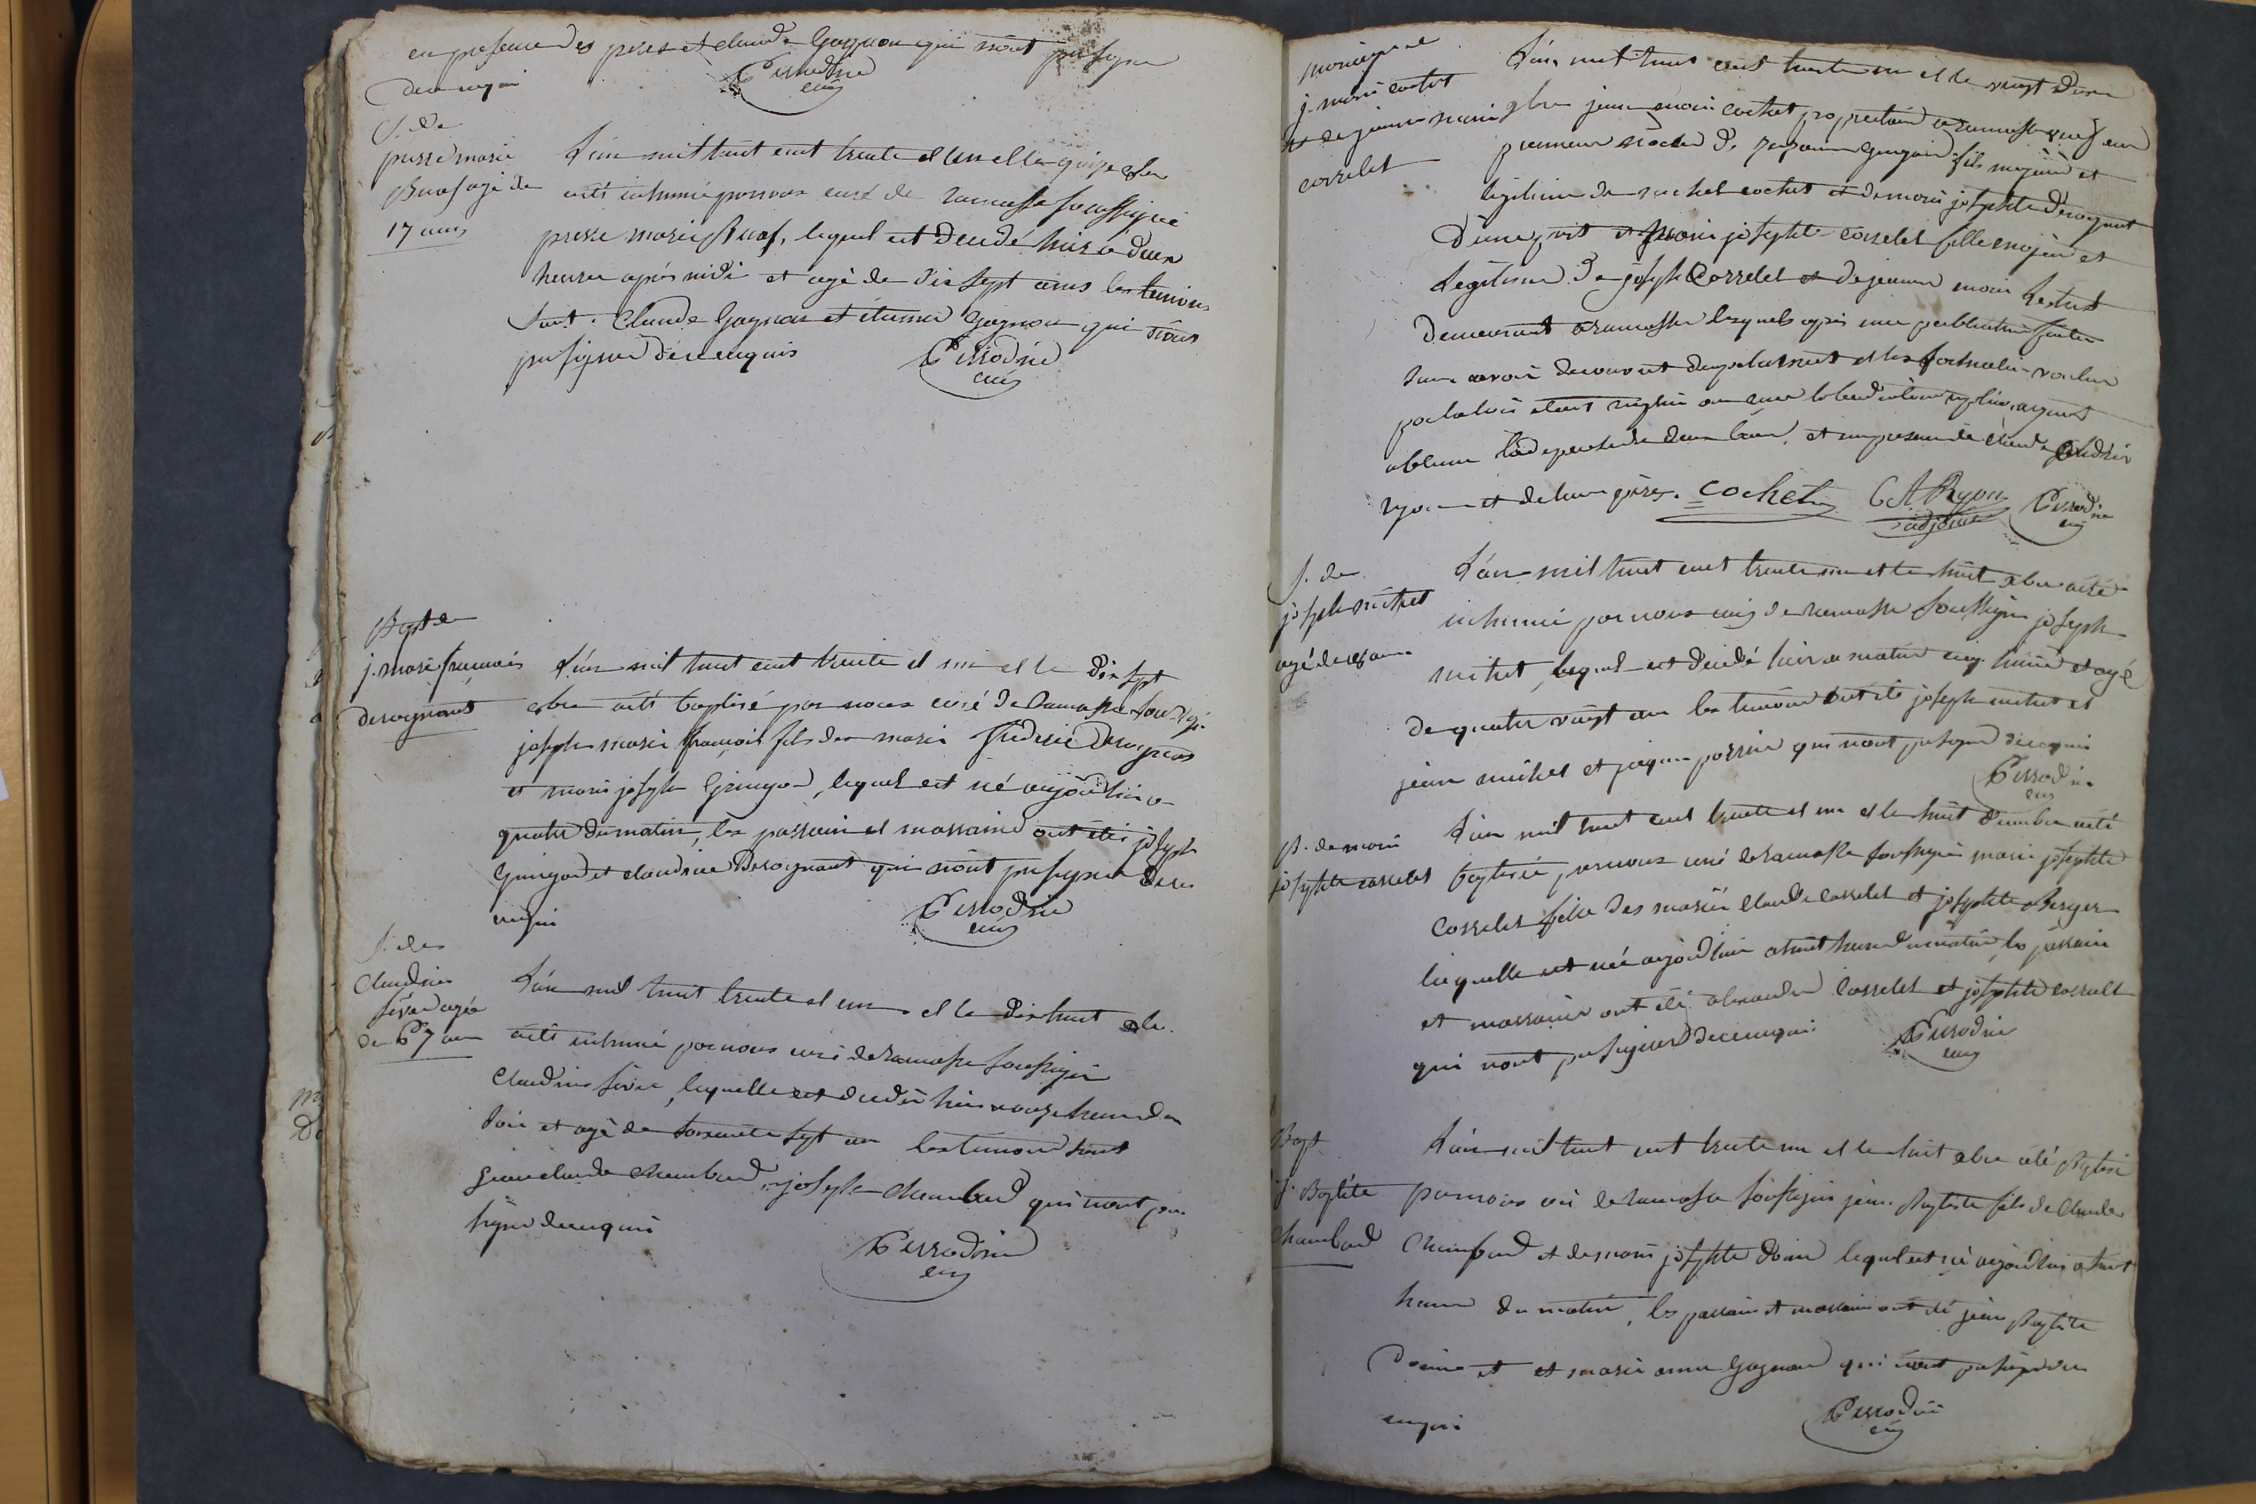 en presence des peres et claude Gagnon qui n'ont pu signer
de ce enquis
Perrodin
curé
S. de
pierre marie
Buaf agé de
17 ans
L'an mil huit cent trente et un et le quinze
a été inhumé par nous curé de ramasse soussigné
pierre marie Buaf, lequel est decedé hier à deux
heures après midi et agé de dix sept ans les temoins
sont Claude Gagnon et etienne Gagnon qui n'ont
pu signer de ce enquis
Perrodin
curé
Bapt de
j. marie francois
derognant
L'an mil huit cent trente et un et le dix sept
a été baptisé par nous curé de Ramasse soussigné
joseph marie françois fils de marie frederic derognat
et marie joseph Gringoz, lequel est né aujourd'hui a
quatre du matin, les parrain et marraine ont étés joseph
et claudine Derognant qui n'ont pu signer de ce
enquis
Perrodin
curé
S. de
Claudine
agée
de 67 ans
L'an mil huit trente et un et le dix huit
a été inhumé par nous curé de ramasse soussigné
Claudine, laquelle est decedée hier a onze heures du
soir et agé de soixante sept ans les temoins sont
jean claude chambard, joseph chambard qui n'ont pu
signer de ce enquis
Perrodin
curé
mariage de
j. marie cochet
et de jeanne marie
corselet
L'an mil huit cent trente un et le vingt deux
jean marie cochet proprietaire a ramasse veuf en
premiere noces de fils majeur et
legitime de michel cochet et de marie josephte derognat
d'une part et marie josephte corselet fille majeure et
legitime de joseph Corselet et de jeanne marie
demeurant a ramasse lesquels après une publication faite
sans avoir decouvert d'empechement et les formalités voulues
par la loi etant remplies ont reçu la benediction nuptiale, ayant
obtenu la dispense de deux bans, et en presence de claude
ryon et de leurs pères. Cochet C A Ryon Perrodin
adjoint curé
S. de
joseph michet
agé de 80 ans
L'an mil huit cent trente un et le huit a été
inhumé par nous curé de ramasse soussigné joseph
michet, lequel est decedé hier a matin cinq heures et agé
de quatre vingt ans les temoins ont été joseph michet et
jean michet et jacques perrin qui n'ont pu signer de ce enquis
Perrodin
curé
B. de marie
josephte corselet
L'an mil huit cent trente et un et le huit decembre a été
baptisée par nous curé de ramasse soussigné marie josephte
Corselet fille des mariés claude corselet et josephte Berger
laquelle est née aujourd'hui a huit heures du matin, les parrain
et marraine ont été alexandre corselet et josephte corselet
qui n'ont pu signer de ce enquis
Perrodin
curé
Bapt.
j. Baptiste
Chambard
L'an mil huit cent trente un et le huit a été Baptisé
par nous curé de ramasse soussigné jean Baptiste fils de Claude
Chambard et de marie josephte doin lequel est né aujourd'hui a huit
heures du matin, les parrain et marraine ont été jean Baptiste
doin et et marie anne Gagnon qui n'ont pu signer de ce
enquis
Perrodin
curé